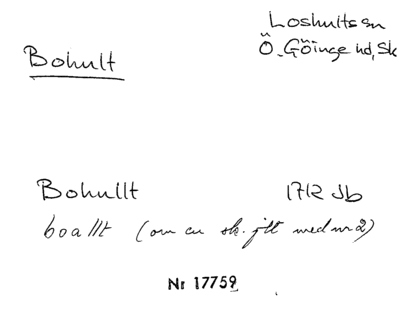 Loshults sn
Bohult
Ö. Göinge hd, Sk
Bohullt 1712 Jb
boallt (om en sk. jtl med nr 2)
Nr 17759